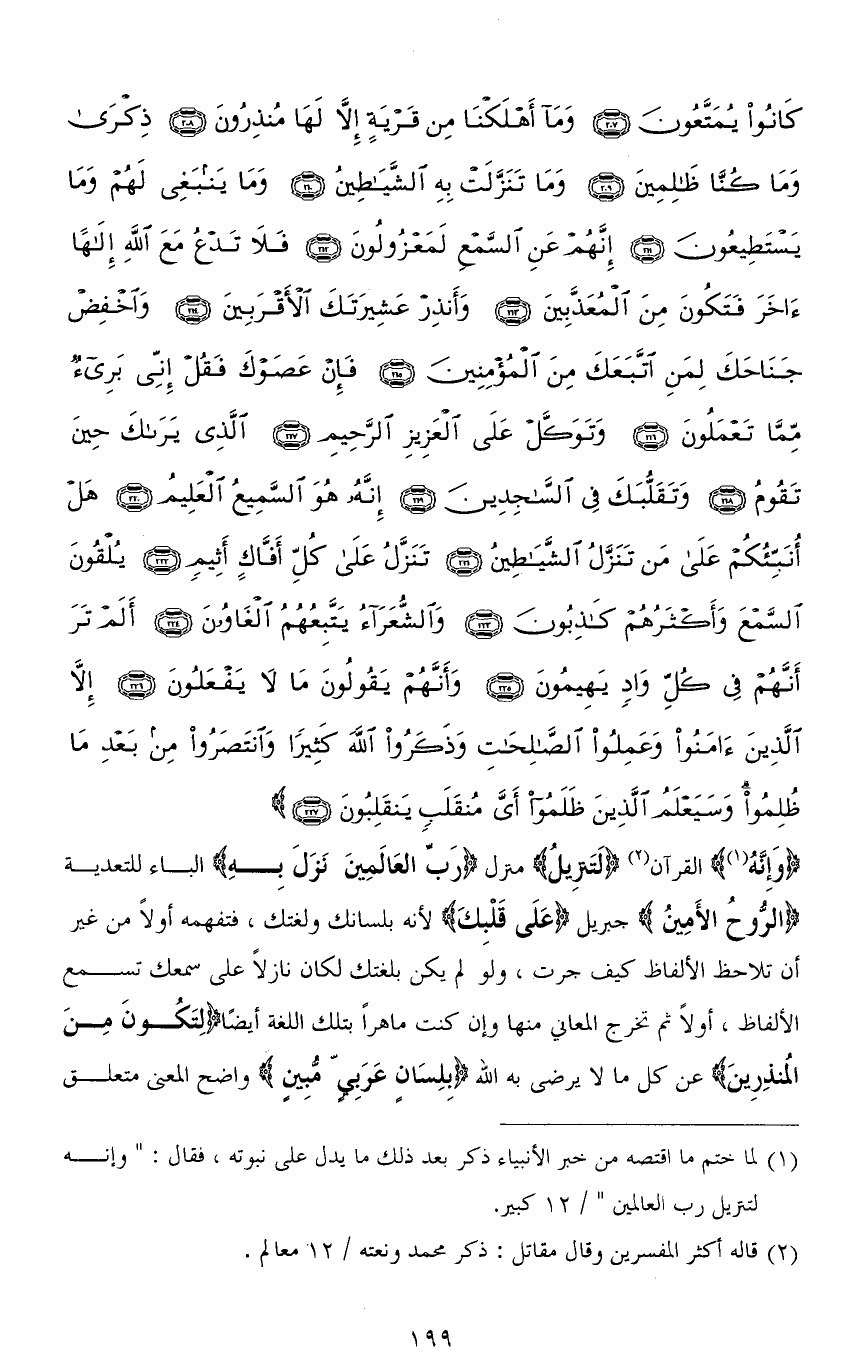 كَانُوا۟ يُمَتَّعُونَ ﴿٢٠٧﴾ وَمَآ أَهْلَكْنَا مِن قَرْيَةٍ إِلَّا لَهَا مُنذِرُونَ ﴿٢٠٨﴾ ذِكْرَىٰ
وَمَا كُنَّا ظَـٰلِمِينَ ﴿٢٠٩﴾ وَمَا تَنَزَّلَتْ بِهِ ٱلشَّيَـٰطِينُ ﴿٢١٠﴾ وَمَا يَنۢبَغِى لَهُمْ وَمَا
يَسْتَطِيعُونَ ﴿٢١١﴾ إِنَّهُمْ عَنِ ٱلسَّمْعِ لَمَعْزُولُونَ ﴿٢١٢﴾ فَلَا تَدْعُ مَعَ ٱللَّهِ إِلَـٰهًا
ءَاخَرَ فَتَكُونَ مِنَ ٱلْمُعَذَّبِينَ ﴿٢١٣﴾ وَأَنذِرْ عَشِيرَتَكَ ٱلْأَقْرَبِينَ ﴿٢١٤﴾ وَٱخْفِضْ
جَنَاحَكَ لِمَنِ ٱتَّبَعَكَ مِنَ ٱلْمُؤْمِنِينَ ﴿٢١٥﴾ فَإِنْ عَصَوْكَ فَقُلْ إِنِّى بَرِىٓءٌ
مِّمَّا تَعْمَلُونَ ﴿٢١٦﴾ وَتَوَكَّلْ عَلَى ٱلْعَزِيزِ ٱلرَّحِيمِ ﴿٢١٧﴾ ٱلَّذِى يَرَىٰكَ حِينَ
تَقُومُ ﴿٢١٨﴾ وَتَقَلُّبَكَ فِى ٱلسَّـٰجِدِينَ ﴿٢١٩﴾ إِنَّهُۥ هُوَ ٱلسَّمِيعُ ٱلْعَلِيمُ ﴿٢٢٠﴾ هَلْ
أُنَبِّئُكُمْ عَلَىٰ مَن تَنَزَّلُ ٱلشَّيَـٰطِينُ ﴿٢٢١﴾ تَنَزَّلُ عَلَىٰ كُلِّ أَفَّاكٍ أَثِيمٍ ﴿٢٢٢﴾ يُلْقُونَ
ٱلسَّمْعَ وَأَكْثَرُهُمْ كَـٰذِبُونَ ﴿٢٢٣﴾ وَٱلشُّعَرَآءُ يَتَّبِعُهُمُ ٱلْغَاوُۥنَ ﴿٢٢٤﴾ أَلَمْ تَرَ
أَنَّهُمْ فِى كُلِّ وَادٍ يَهِيمُونَ ﴿٢٢٥﴾ وَأَنَّهُمْ يَقُولُونَ مَا لَا يَفْعَلُونَ ﴿٢٢٦﴾ إِلَّا
ٱلَّذِينَ ءَامَنُوا۟ وَعَمِلُوا۟ ٱلصَّـٰلِحَـٰتِ وَذَكَرُوا۟ ٱللَّهَ كَثِيرًا وَٱنتَصَرُوا۟ مِنۢ بَعْدِ مَا
ظُلِمُوا۟ ۗ وَسَيَعْلَمُ ٱلَّذِينَ ظَلَمُوٓا۟ أَىَّ مُنقَلَبٍ يَنقَلِبُونَ ﴿٢٢٧﴾ ﴾
﴿وَإِنَّهُ(١)﴾ القرآن(٢) ﴿لَتَنزِيلُ﴾ منزل ﴿رَبِّ العَالَمِينَ نَزَلَ بِـــهِ﴾ البـــاء للتعديـــة
﴿الرُّوحُ الأَمِينُ ﴾ جبريل ﴿عَلَى قَلْبِكَ﴾ لأنه بلسانك ولغتك ، فتفهمه أولاً من غير
أن تلاحظ الألفاظ كيف جرت ، ولو لم يكن بلغتك لكان نازلاً على سمعك تســـمع
الألفاظ ، أولاً ثم تخرج المعاني منها وإن كنت ماهراً بتلك اللغة أيضًا﴿لِتَكُــونَ مِــنَ
المُنذِرِينَ﴾ عن كل ما لا يرضى به الله ﴿بِلِسَانٍ عَرَبِيٍّ مُّبِينٍ ﴾ واضح المعنى متعلـــق
(١) لما ختم ما اقتصه من خبر الأنبياء ذكر بعد ذلك ما يدل على نبوته ، فقال : " وإنـــه
لتنزيل رب العالمين " / ١٢ كبير.
(٢) قاله أكثر المفسرين وقال مقاتل : ذكر محمد ونعته / ١٢ معالم .
١٩٩